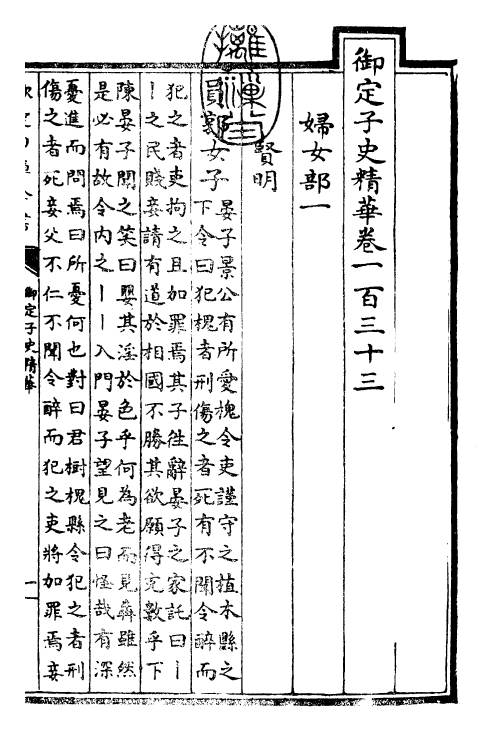 御定子史精華卷一百三十三
婦女部一
賢明
女子
晏子景公有所愛槐令吏謹守之植木縣之
下令曰犯槐者刑傷之者死有不聞令醉而
犯之者吏拘之且加罪焉其子往辭晏子之家託曰丨
丨之民賤妾請有道於相國不勝其欲願得充數乎下
陳晏子聞之笑曰嬰其淫於色乎何為老而見犇雖然
是必有故令內之丨丨入門晏子望見之曰怪哉有深
憂進而問焉曰所憂何也對曰君樹槐縣令犯之者刑
傷之者死妾父不仁不聞令醉而犯之吏將加罪焉妾
御定子史精華
一